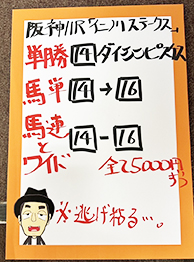 阪神11R「仁川ステークス」
単勝 14 ダイシンピスケス
馬単 14 → 16
馬連とワイド 14 - 16
全て5000円ずつ
必ず逃げ粘る…。